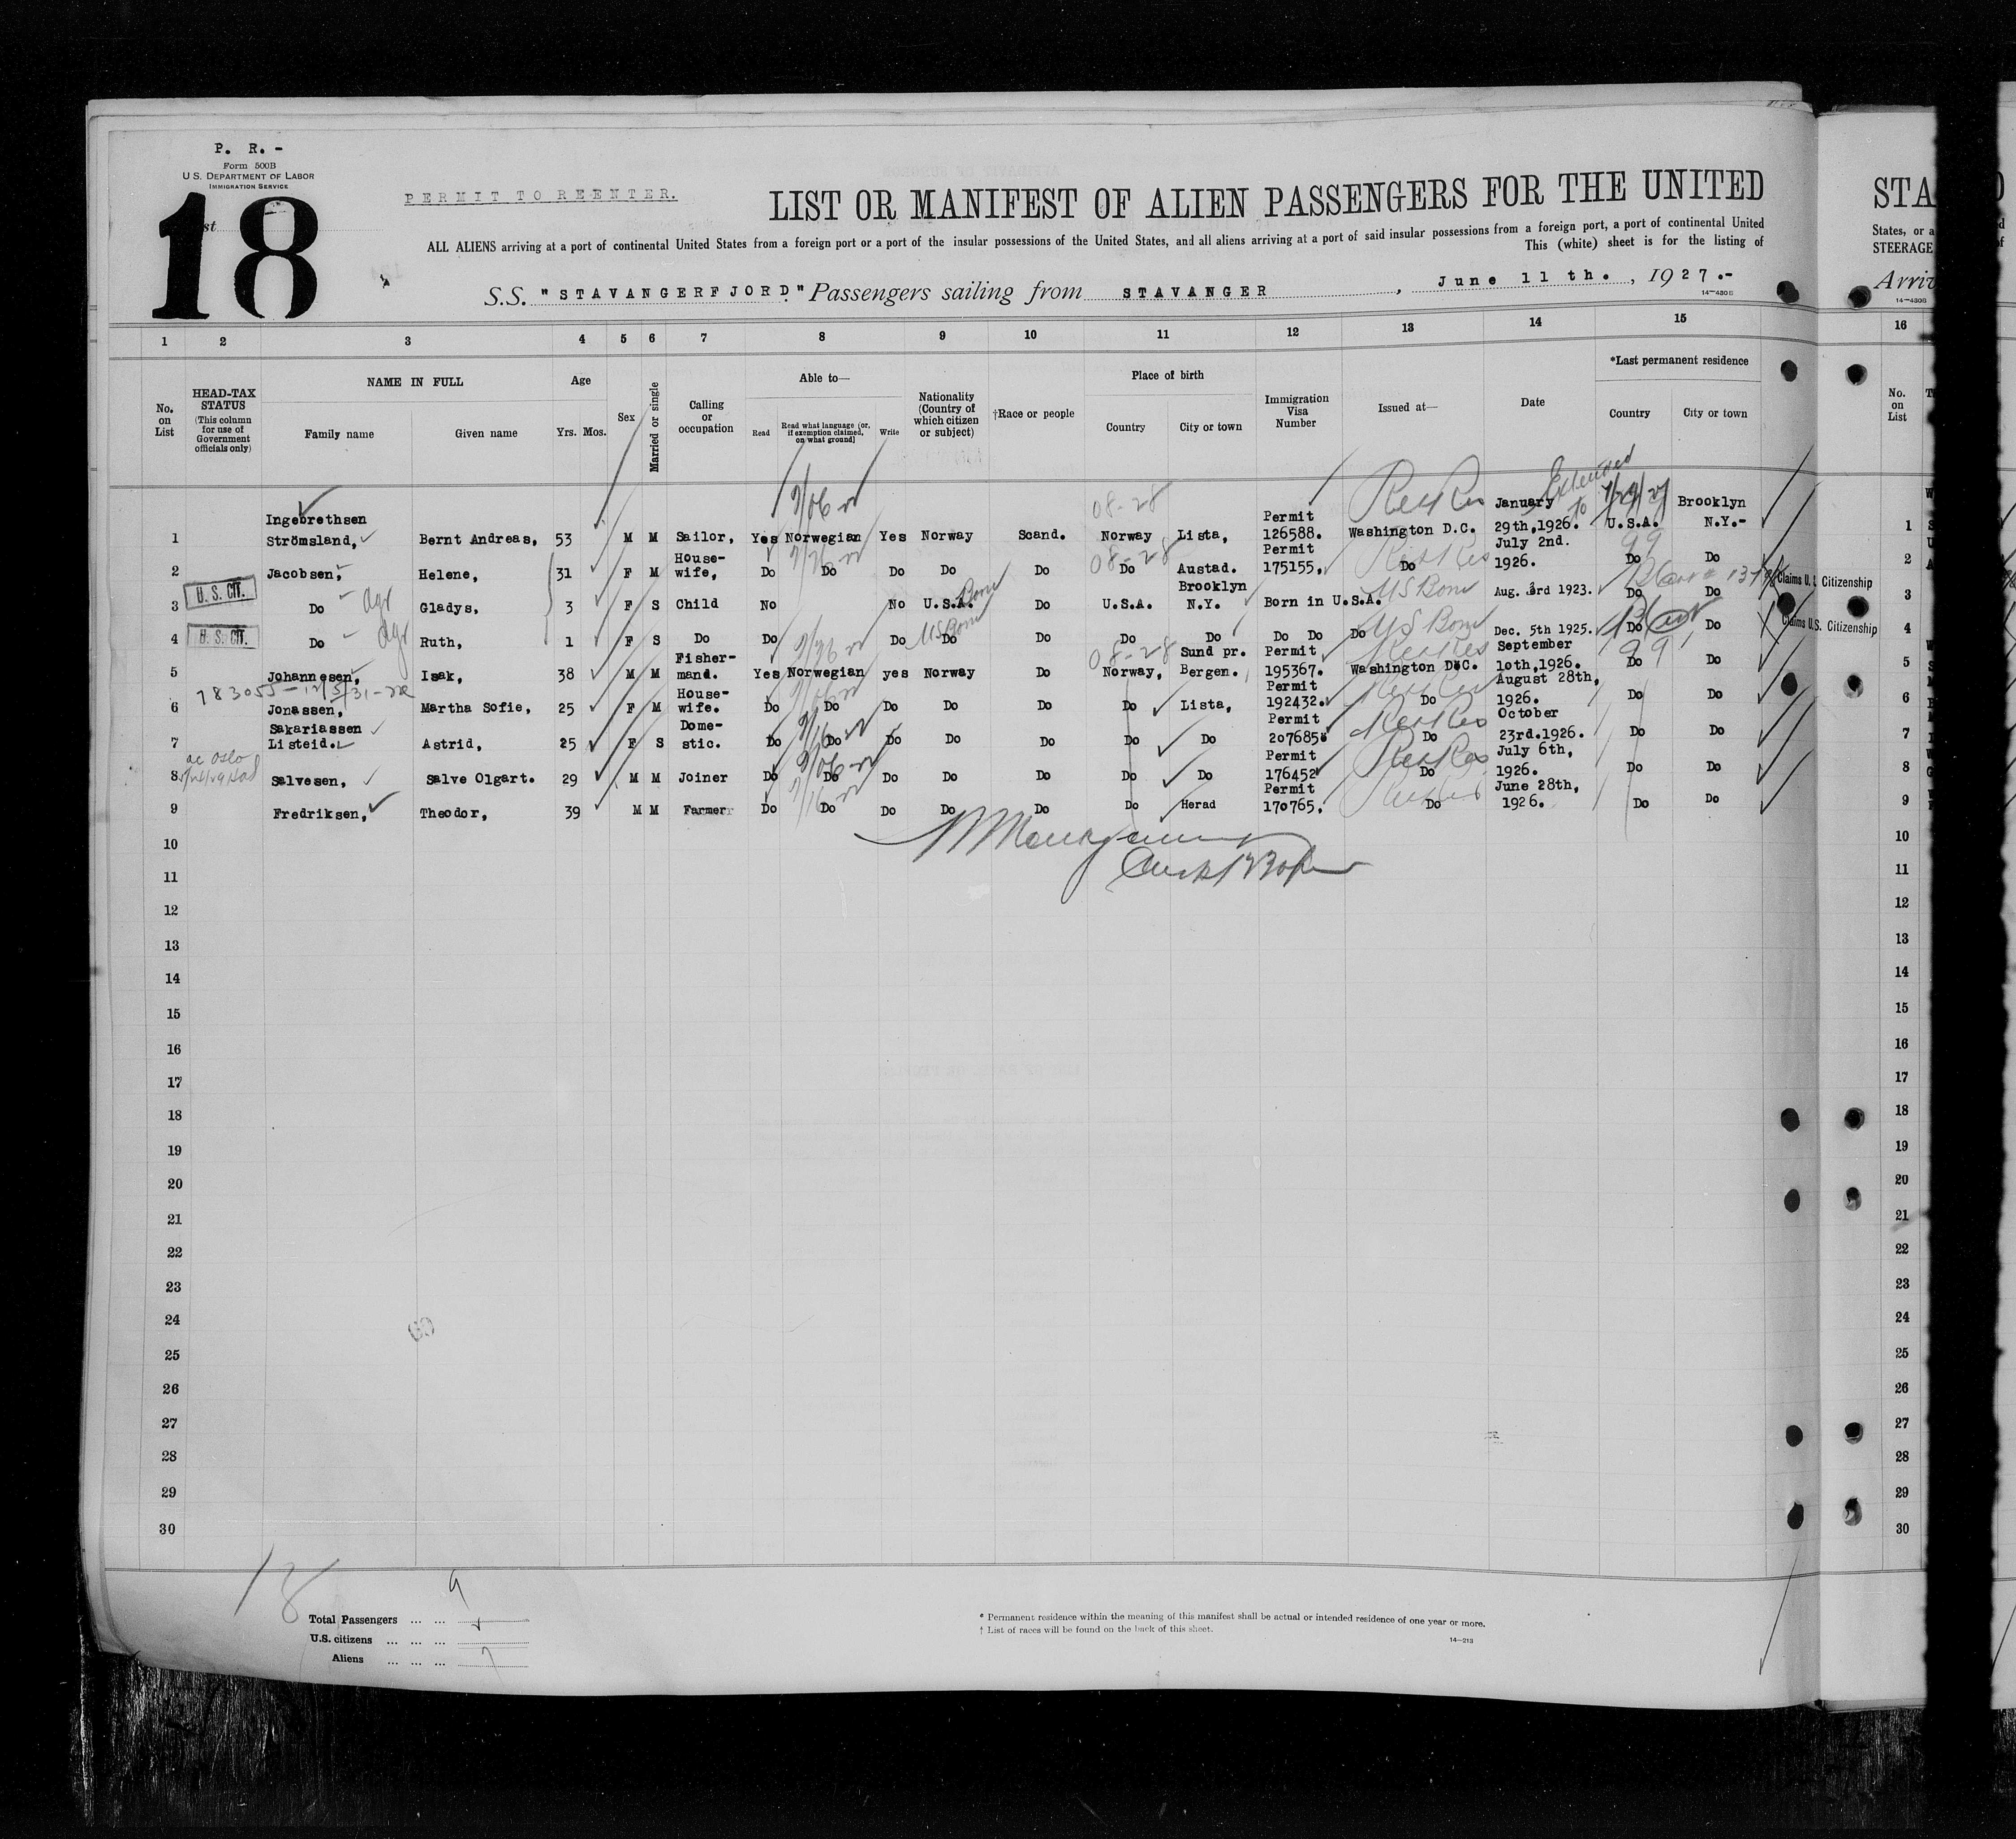 P. R. -
Form 500B
U. S. DEPARTMENT OF LABOR
IMMIGRATION SERVICE
18
PERMIT TO REENTER.
LIST OR MANIFEST OF ALIEN PASSENGERS FOR THE UNITED
ALL ALIENS arriving at a port of continental United States from a foreign port or a port of the insular possessions of the United States, and all aliens arriving at a port of said insular possessions from a foreign port, a port of continental United
This (white) sheet is for the listing of
S.S. "STAVANGERFJORD." Passengers sailing from STAVANGER, June 11 th., 1927.-
14—430B
1 2 3 4 5 6 7 8 9 10 11 12 13 14 15
No. on List
HEAD-TAX STATUS (This column for use of Government officials only)
NAME IN FULL
Family name Given name
Age
Yrs. Mos.
Sex
Married or single
Calling or occupation
Able to—
Read Read what language [or, if exemption claimed, on what ground] Write
Nationality (Country of which citizen or subject)
†Race or people
Place of birth
Country City or town
Immigration Visa Number
Issued at—
Date
*Last permanent residence
Country City or town
Extended to 7/29/27
1 Ingebrethsen Strömsland, Bernt Andreas, 53 M M Sailor, Yes Norwegian Yes Norway Scand. Norway Lista, Permit 126588. Washington D.C. January 29th,1926. U.S.A. Brooklyn N.Y.-
08-28
2 Jacobsen, Helene, 31 F M House-wife, Do Do Do Do Do Do Austad. Permit 175155. Do July 2nd. 1926. Do Do
08-28
U. S. CIT.
3 Do Gladys, 3 F S Child No No U.S.A. Do U.S.A. Brooklyn N.Y. Born in U.S.A. Aug. 3rd 1923. Do Do
US Born
Claims U. S. Citizenship
U. S. CIT.
4 Do Ruth, 1 F S Do Do Do Do Do Do Do Do Do Do Dec. 5th 1925. Do Do
US Born
US Born
Claims U.S. Citizenship
5 Johannesen, Isak, 38 M M Fisher-mand. Yes Norwegian yes Norway Do Norway, Sund pr. Bergen. Permit 195367. Washington D.C. September 10th,1926. Do Do
08-28
6 Jonassen, Martha Sofie, 25 F M House-wife. Do Do Do Do Do Do Lista, Permit 192432. Do August 28th, 1926. Do Do
7 Sakariassen Listeid. Astrid, 25 F S Dome-stic. Do Do Do Do Do Do Do Permit 207685 Do October 23rd.1926. Do Do
8 Salvesen, Salve Olgart. 29 M M Joiner Do Do Do Do Do Do Do Permit 176452 Do July 6th, 1926. Do Do
9 Fredriksen, Theodor, 39 M M Farmer Do Do Do Do Do Do Herad Permit 170765. Do June 28th, 1926. Do Do
10
11
12
13
14
15
16
17
18
19
20
21
22
23
24
25
26
27
28
29
30
18
Total Passengers ... ... 9
U.S. citizens ... ... ...
Aliens ... ... ... 7
* Permanent residence within the meaning of this manifest shall be actual or intended residence of one year or more.
† List of races will be found on the back of this sheet.
14—213
STA
States, or a
STEERAGE
Arriv
14—430B
16
No. on List
1
2
3
4
5
6
7
8
9
10
11
12
13
14
15
16
17
18
19
20
21
22
23
24
25
26
27
28
29
30